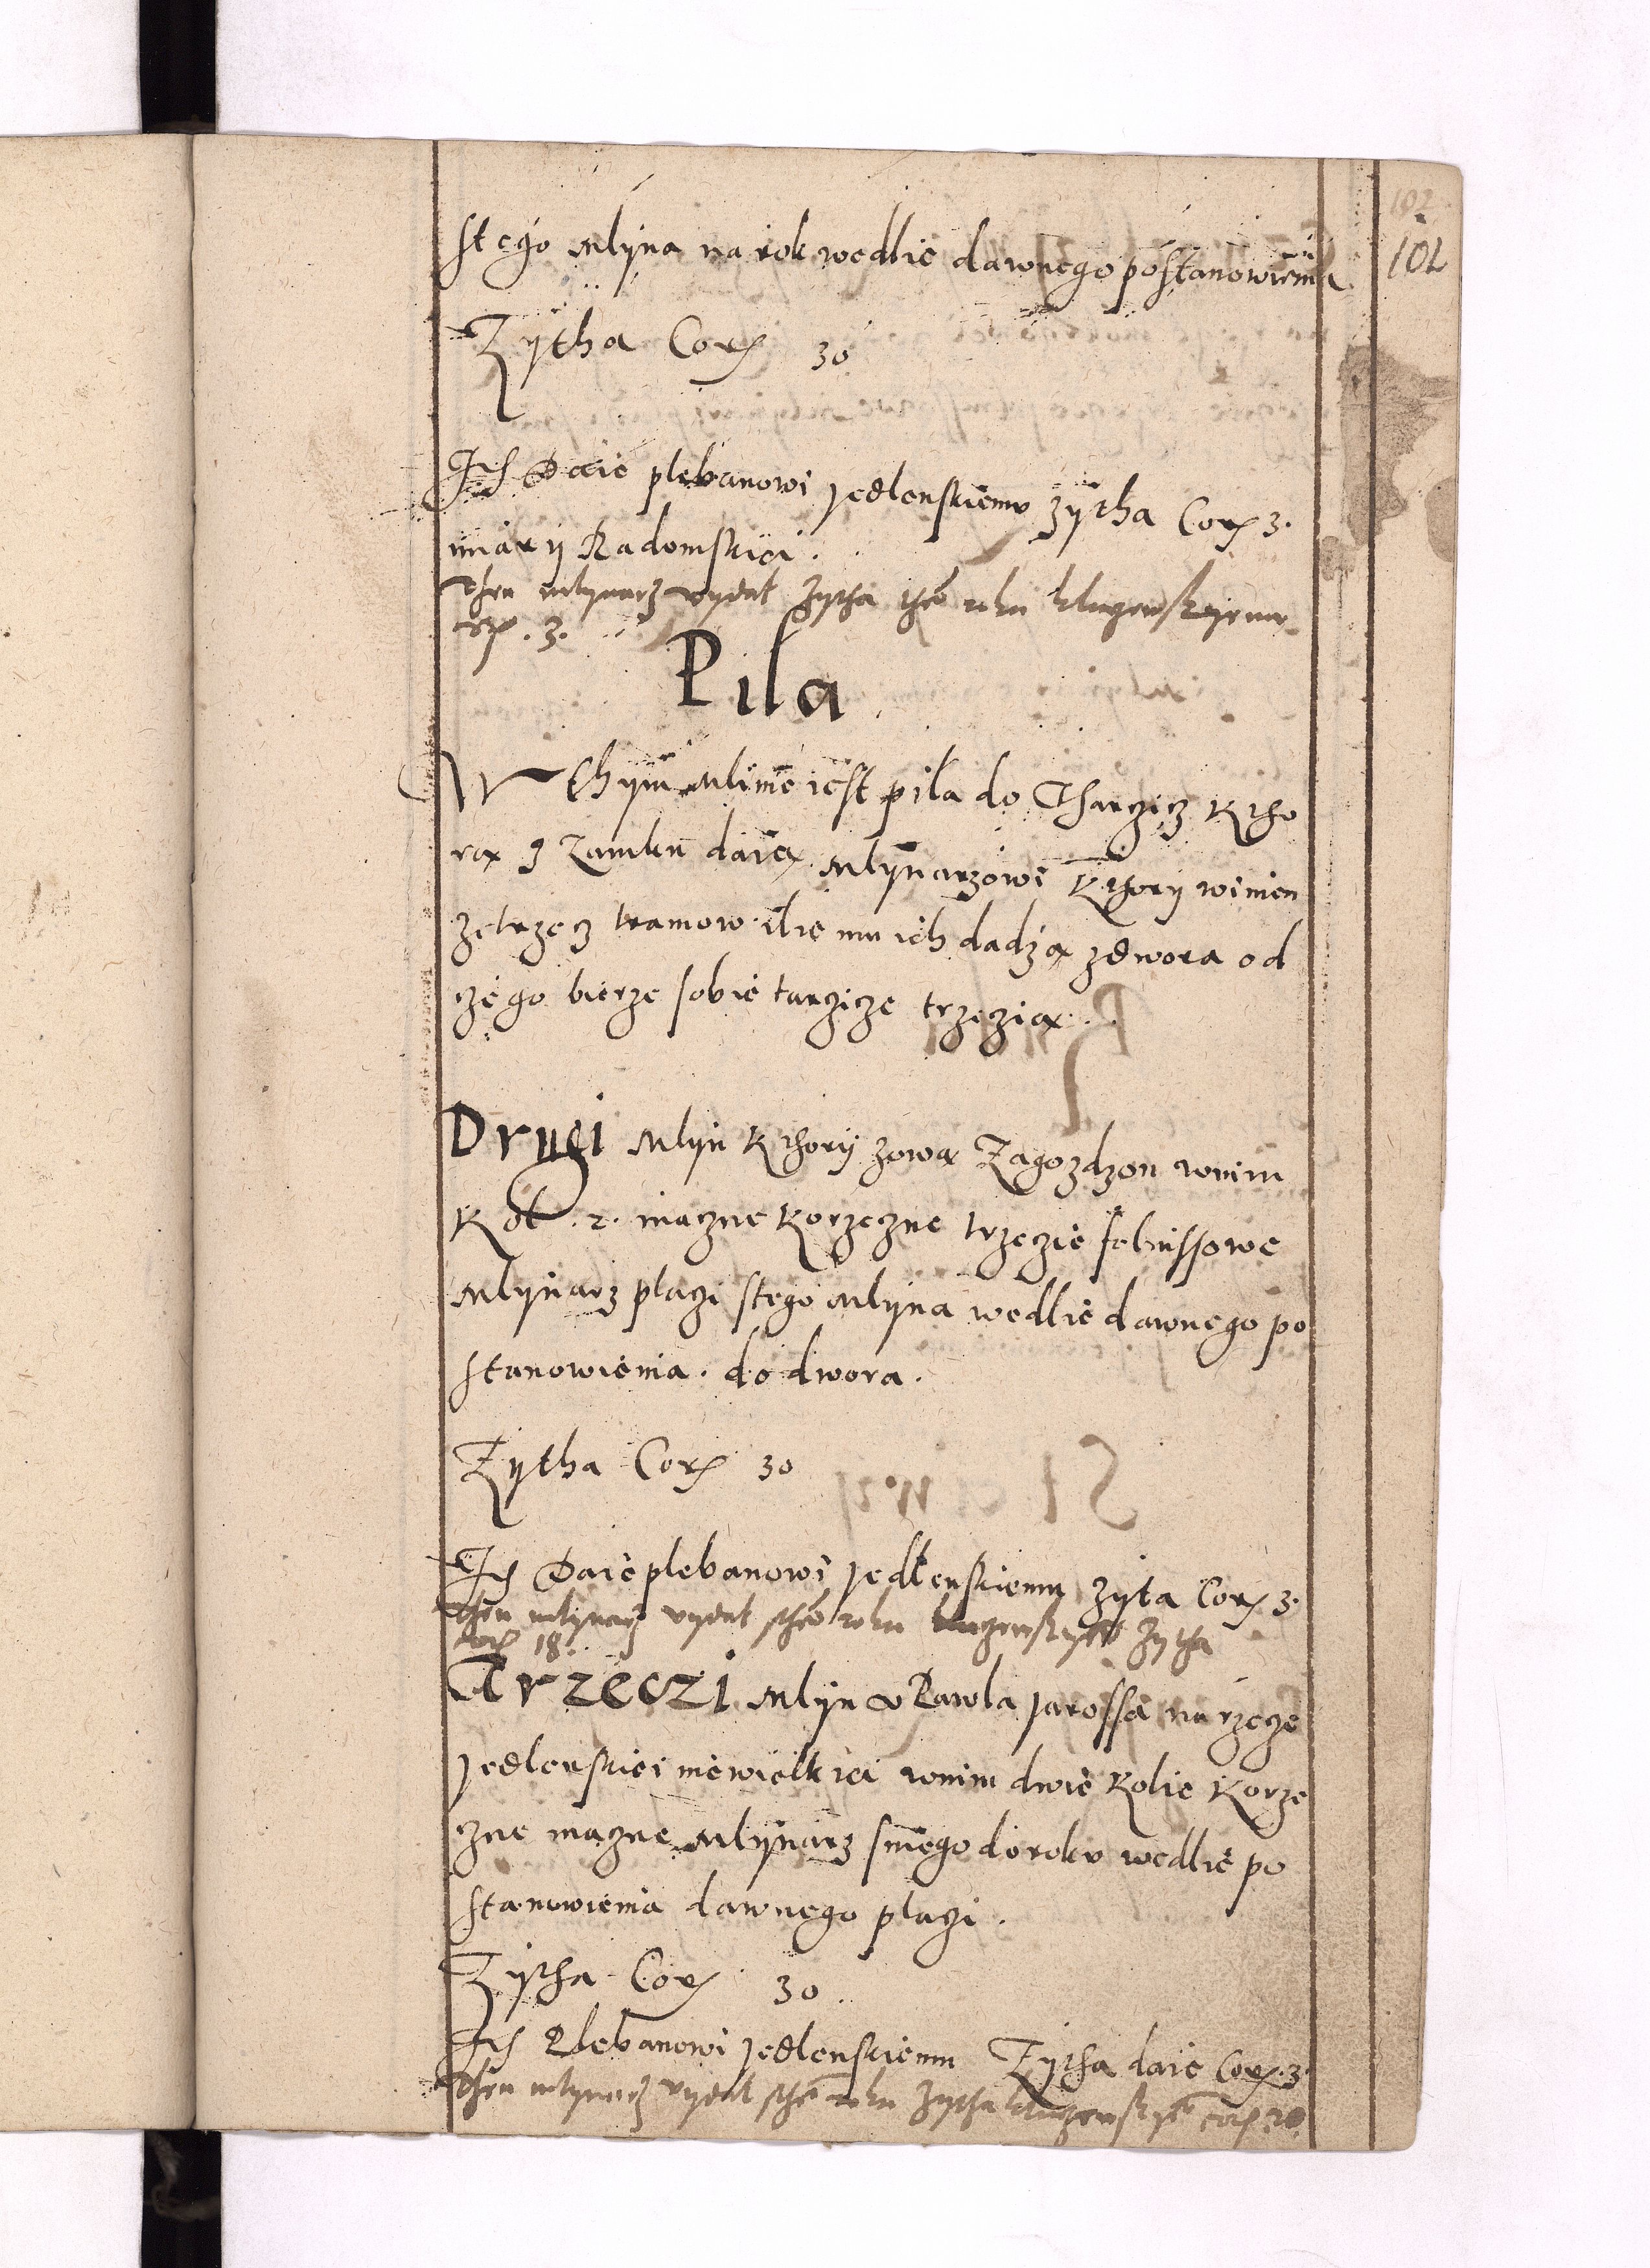 102
101
stego Mlyna na rok wedlie dawnego postanowienia
Zytha Cor 30
It Daie plebanowi Jedlenskiemu zytha Cor 3.
miary Radomskiei.
Then mlynarz wydal zytha theo roku
cor. 3.
Pila
W Thym Mlinie iest pila do Tharczicz Ktho
rą z Zamku daią Mlynarzowi Kthory winien
zetrzecz tramow ilie mu ich dadzą zdwora od
czego bierze sobie tarczicze trzeczią.
Drugi Mlyn Kthory zową Zagozdzon wnim
Kol. 2. maczne Korzeczne trzeczie
Mlynarz placzi stego Mlyna wedlie dawnego po
stanowienia. do dwora.
Zytha Cor 30
It Daie plebanowi Jedlenskiemu zyta Cor 3.
Then mlynarz wydal theo roku zytha
cor 18.
Trzeczi Mlyn v Pawla Jarossa na rzecze
Jedlenskiei niewielkiei wnim dwie Kolie Korze
czne maczne Mlynarz sniego do roku wedlie po
stanowienia dawnego placzi.
Zytha Cor 30
It Plebanowi Jedlenskiemu Zytha daie Cor. 3.
Then mlynarz wydal theo roku zytha cor 20.